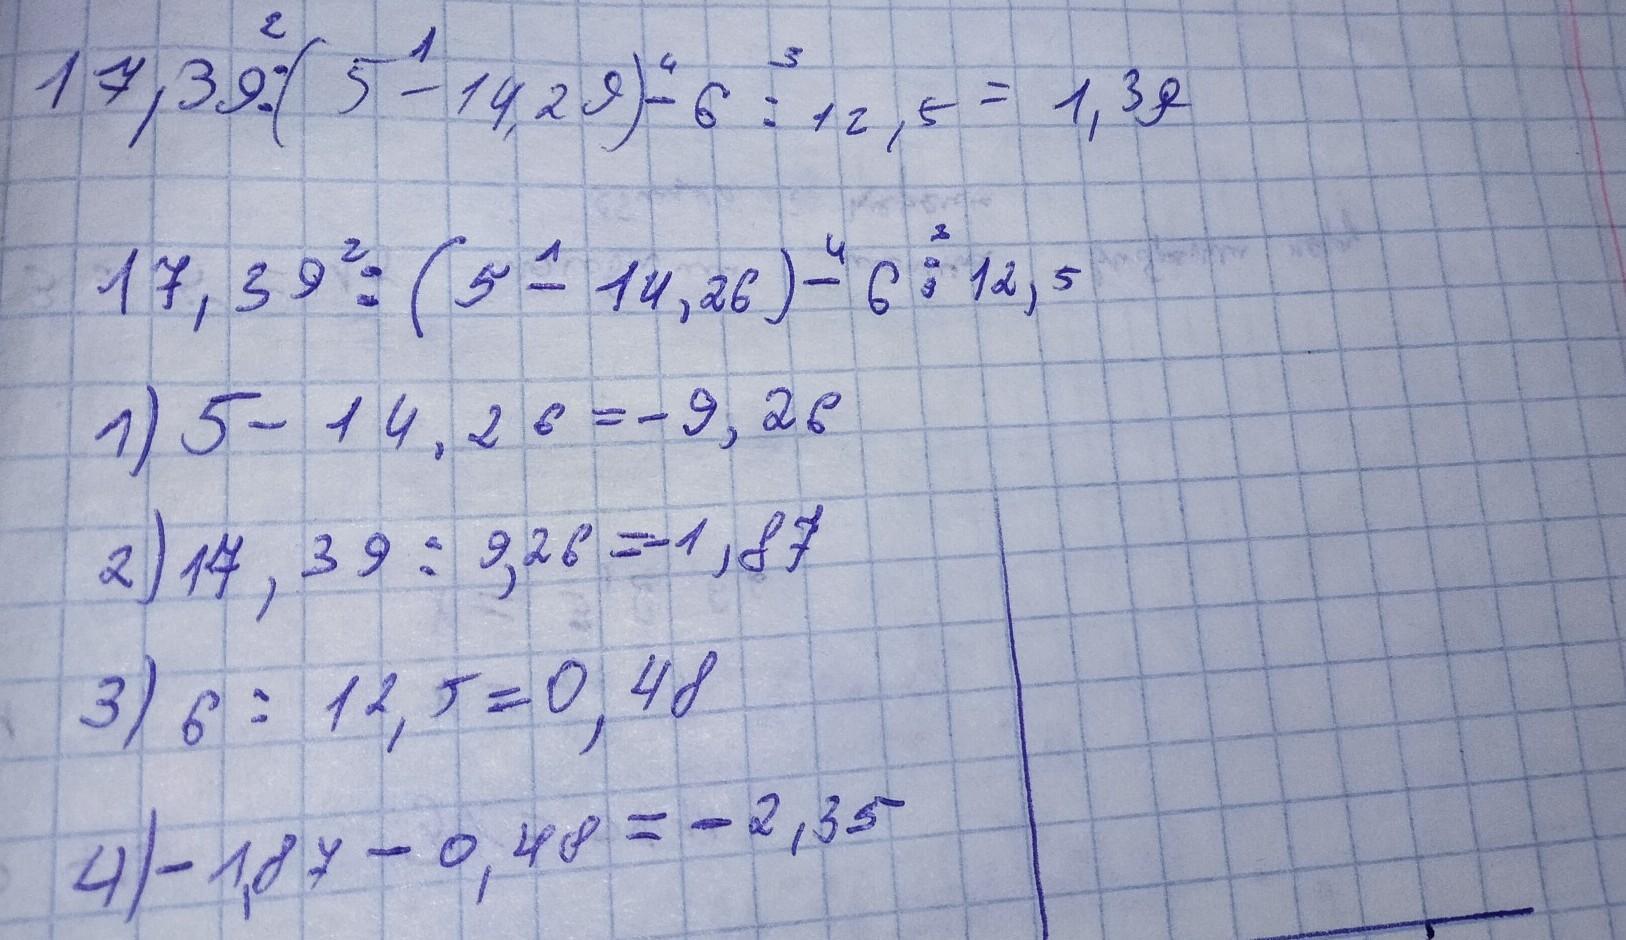 17,39:(5-14,29)-6:12,5=1,39
17,39:(5-14,26)-6:12,5
1) 5-14,26=-9,26
2) 17,39:9,26=-1,87
3) 6:12,5=0,48
4) -1,87-0,48=-2,35